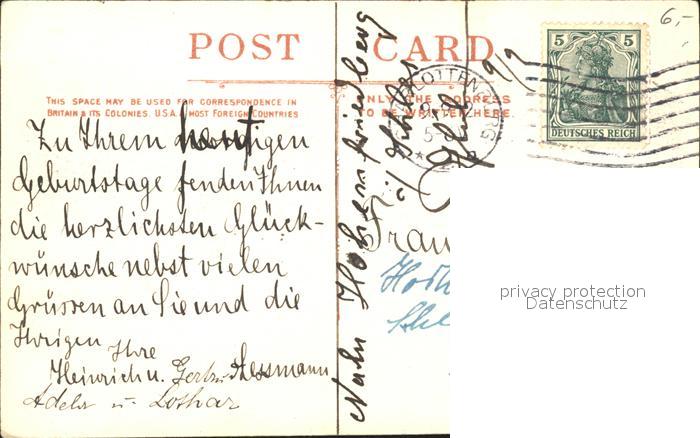 6,-
POST CARD
5
DEUTSCHES REICH
THIS SPACE MAY BE USED FOR CORRESPONDENCE IN
BRITAIN & ITS COLONIES, U.S.A. & MOST FOREIGN COUNTRIES
ONLY THE ADDRESS
TO BE WRITTEN HERE.
Zu Ihrem heutigen
Geburtstage senden Ihnen
die herzlichsten Glück-
wünsche nebst vielen
Grüssen an Sie und die
Ihrigen
Ihre
Heinrich u. Gertrud Hessmann
Adele u. Lothar
Nach Hohenfriedberg
i/Schles
9/9
Frau
privacy protection
Datenschutz